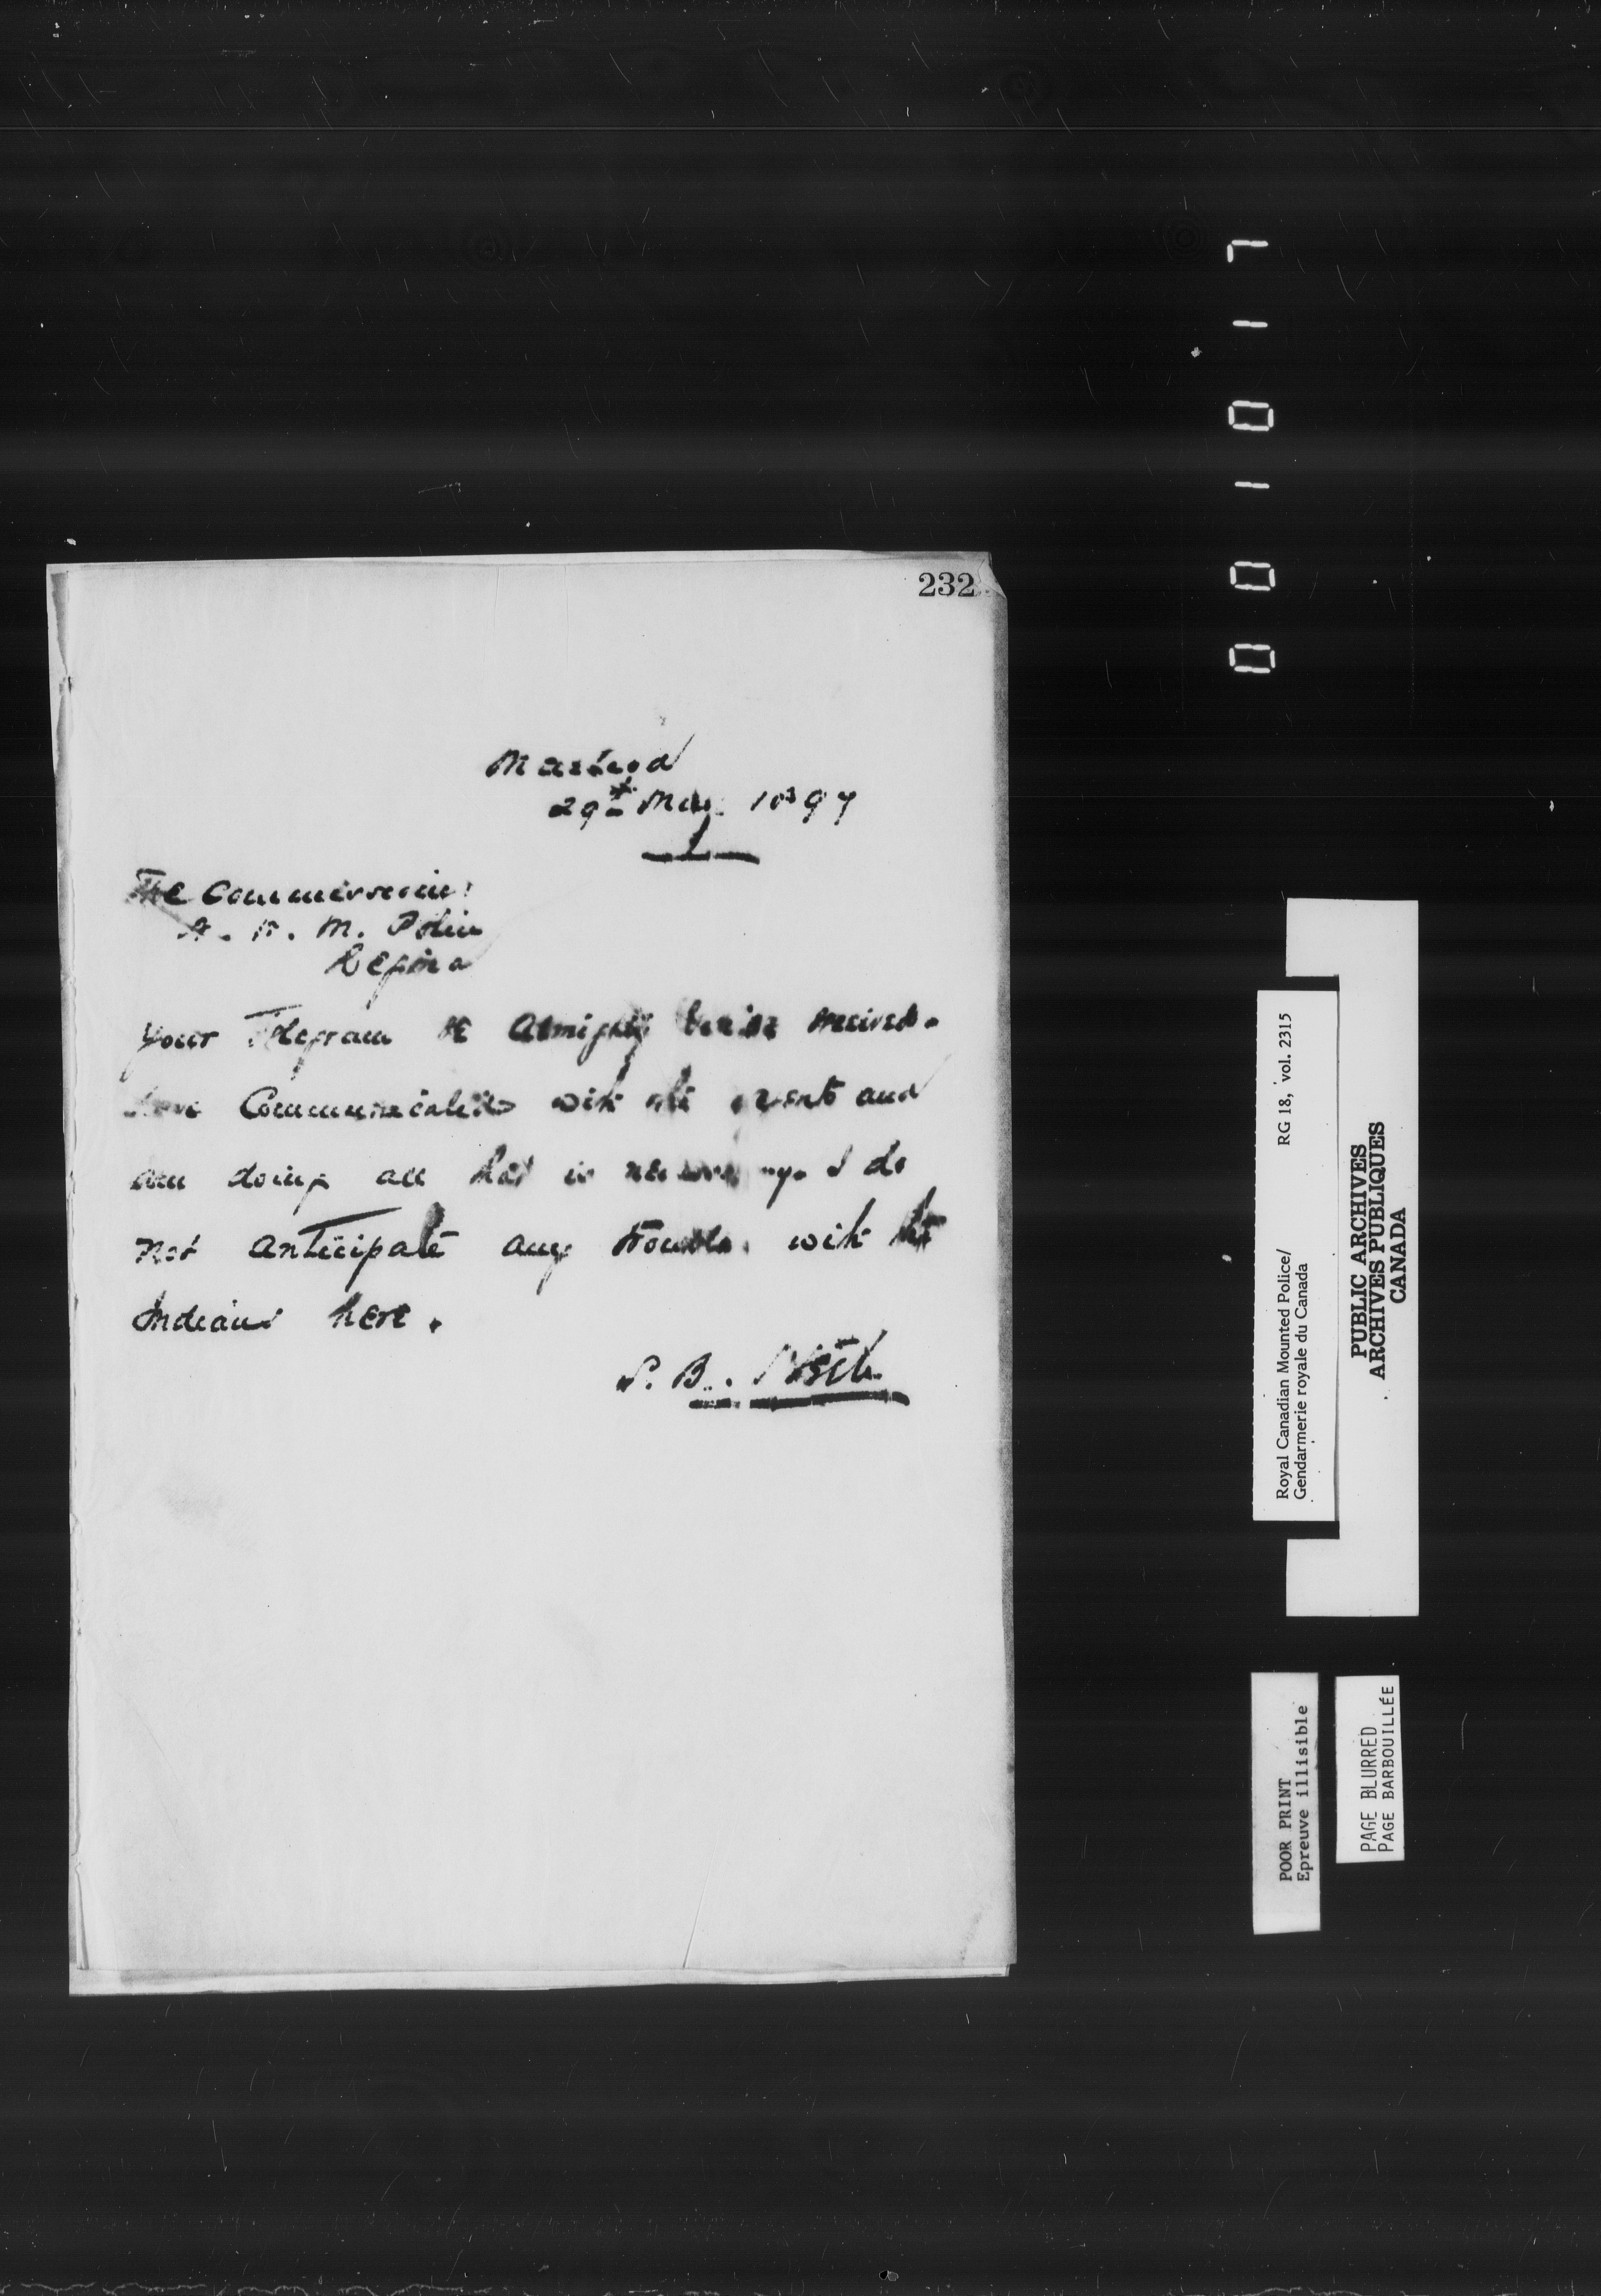 232
Macleod
29th May 1897
The Commissioner
N. W. M. Police
Regina
Your Telegram re Almighty Voice received.
Have Communicated with the agents and
am doing all that is necessary. I do
not anticipate any trouble with the
Indians here.
S. B. Steele
001017
Royal Canadian Mounted Police/ RG 18, vol. 2315
Gendarmerie royale du Canada
PUBLIC ARCHIVES
ARCHIVES PUBLIQUES
CANADA
POOR PRINT
Epreuve illisible
PAGE BLURRED
PAGE BARBOUILLÉE